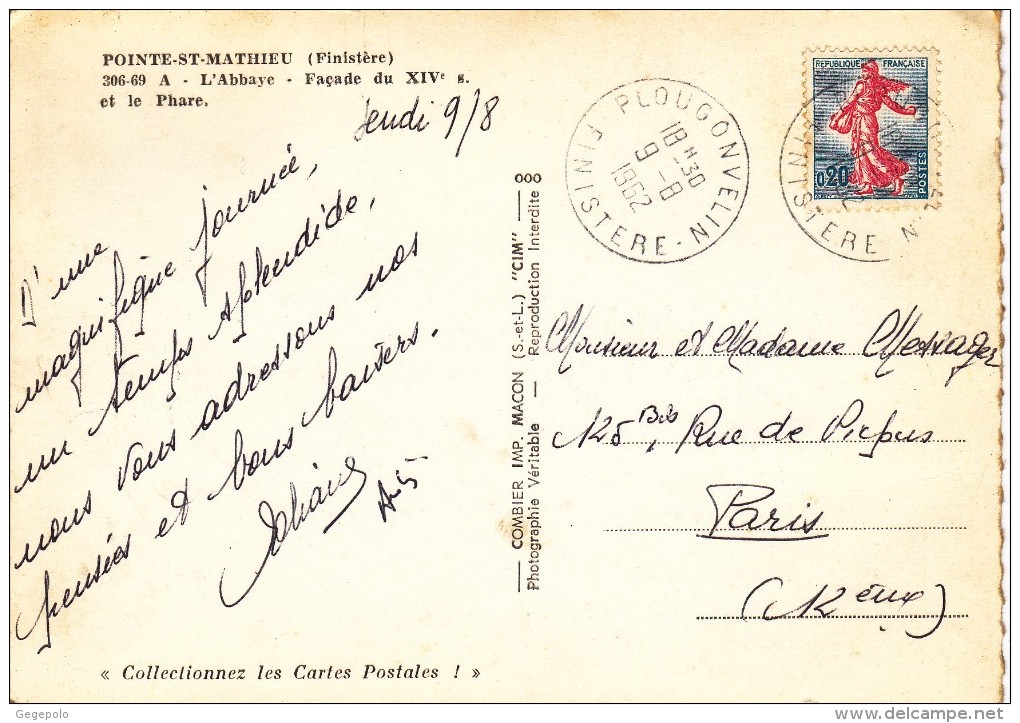 POINTE-ST-MATHIEU (Finistère)
306-69 A - L'Abbaye - Façade du XIVe s.
et le Phare.
Jeudi 9/8
D'une
magnifique journée,
un temps splendide,
nous vous adressons nos
pensées et bons baisers.
« Collectionnez les Cartes Postales ! »
COMBIER IMP. MACON (S.-et-L.) "CIM"
Photographie Véritable — Reproduction Interdite
PLOUGONVELIN
18 H 30
9 - 8
1962
FINISTERE
REPUBLIQUE FRANÇAISE
0,20
POSTES
FINISTERE
Monsieur et Madame Messager
125 Bis, Rue de Picpus
Paris
(12 ème)
Gegepolo
delcampe.net